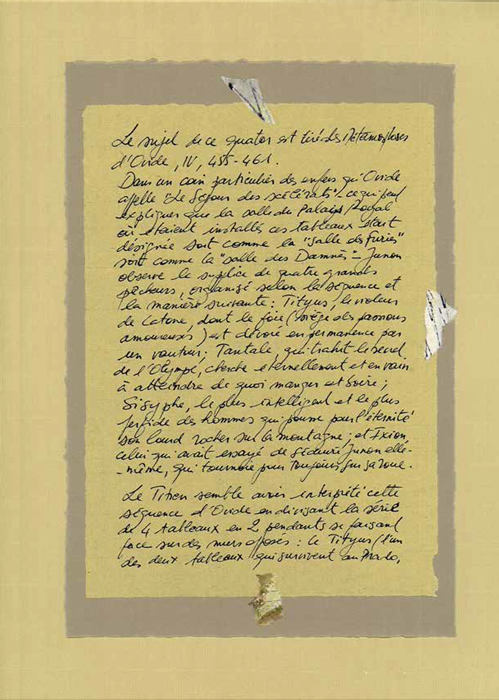 Le sujet de ce quatuor est tiré des Métamorphoses
d'Ovide, IV, 455-461.
Dans un coin particulier des enfers qu'Ovide
appelle "Le Séjour des scélérats" - ce qui peut
expliquer que la salle du Palays Royal
où étaient installés ces tableaux était
désignée soit comme la "salle des Furies"
soit comme la "salle des Damnés" - Junon
observe le suplice de quatre grands
pécheurs, organisé selon la séquence et
la manière suivante : Tityus, le violeur
de Latone, dont le foie (siège des passions
amoureuses) est dévoré en permanence par
un vautour ; Tantale, qui trahit le
de l'Olympe, cherche éternellement et en vain
à atteindre de quoi manger et boire ;
Sisyphe, le plus intelligent et le plus
perfide des hommes qui pousse pour l'éternité
son lourd rocher sur la montagne ; et Ixion,
celui qui avait essayé de séduire Junon elle-
-même, qui tournoie pour toujours sur sa roue.
Le Titien semble avoir interprété cette
séquence d'Ovide en divisant la série
de 4 tableaux en 2 pendants se faisant
face sur des murs opposés : le Tityus (l'un
des deux tableaux qui survivent au Prado,